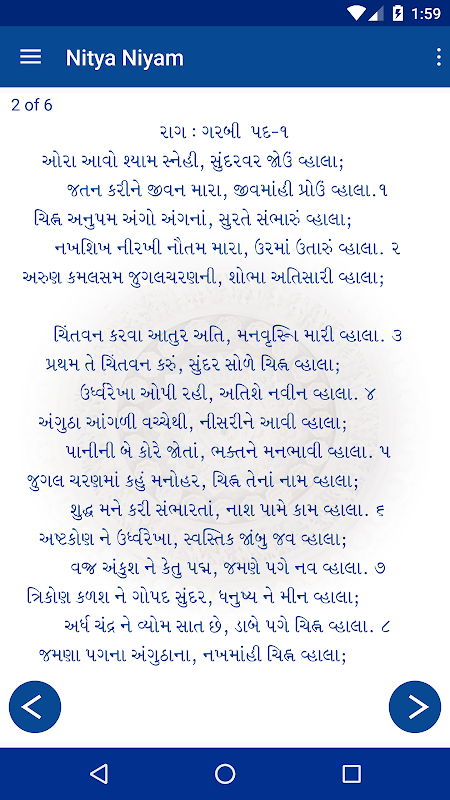 1:59
Nitya Niyam
2 of 6
રાગ : ગરબી પદ-૧
ઓરા આવો શ્યામ સ્નેહી, સુંદરવર જોઉં વ્હાલા;
જતન કરીને જીવન મારા, જીવમાંહી પ્રોઉં વ્હાલા.૧
ચિહ્ન અનુપમ અંગો અંગનાં, સુરતે સંભારું વ્હાલા;
નખશિખ નીરખી નૌતમ મારા, ઉરમાં ઉતારું વ્હાલા. ૨
અરુણ કમલસમ જુગલચરણની, શોભા અતિસારી વ્હાલા;
ચિંતવન કરવા આતુર અતિ, મનવૃત્તિ મારી વ્હાલા. ૩
પ્રથમ તે ચિંતવન કરું, સુંદર સોળે ચિહ્ન વ્હાલા;
ઉર્ધ્વરેખા ઓપી રહી, અતિશે નવીન વ્હાલા. ૪
અંગુઠા આંગળી વચ્ચેથી, નીસરીને આવી વ્હાલા;
પાનીની બે કોરે જોતાં, ભક્તને મનભાવી વ્હાલા. ૫
જુગલ ચરણમાં કહું મનોહર, ચિહ્ન તેનાં નામ વ્હાલા;
શુદ્ધ મને કરી સંભારતાં, નાશ પામે કામ વ્હાલા. ૬
અષ્ટકોણ ને ઉર્ધ્વરેખા, સ્વસ્તિક જાંબુ જવ વ્હાલા;
વજ્ર અંકુશ ને કેતુ પદ્મ, જમણે પગે નવ વ્હાલા. ૭
ત્રિકોણ કળશ ને ગોપદ સુંદર, ધનુષ્ય ને મીન વ્હાલા;
અર્ધ ચંદ્ર ને વ્યોમ સાત છે, ડાબે પગે ચિહ્ન વ્હાલા. ૮
જમણા પગના અંગુઠાના, નખમાંહી ચિહ્ન વ્હાલા;